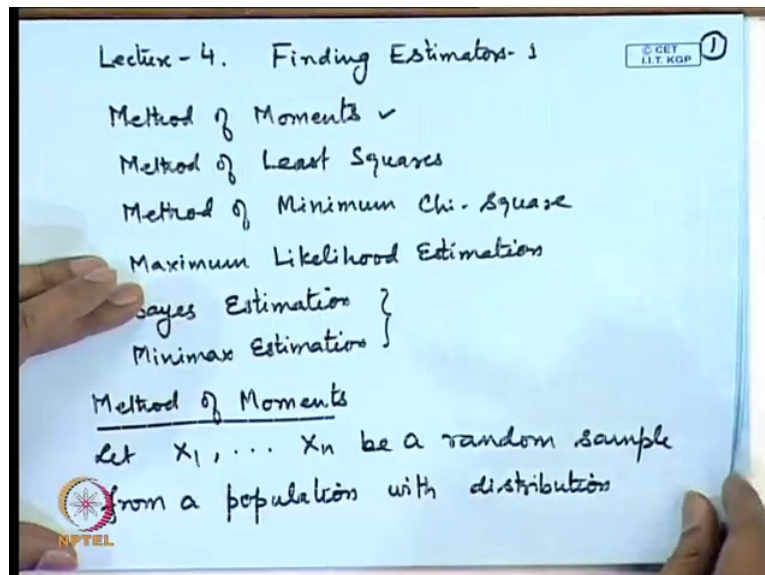 Lecture - 4. Finding Estimators - 1
© CET
I.I.T. KGP
1
Method of Moments ✓
Method of Least Squares
Method of Minimum Chi-Square
Maximum Likelihood Estimation
Bayes Estimation }
Minimax Estimation
Method of Moments
Let X1, ... Xn be a random sample
from a population with distribution
NPTEL